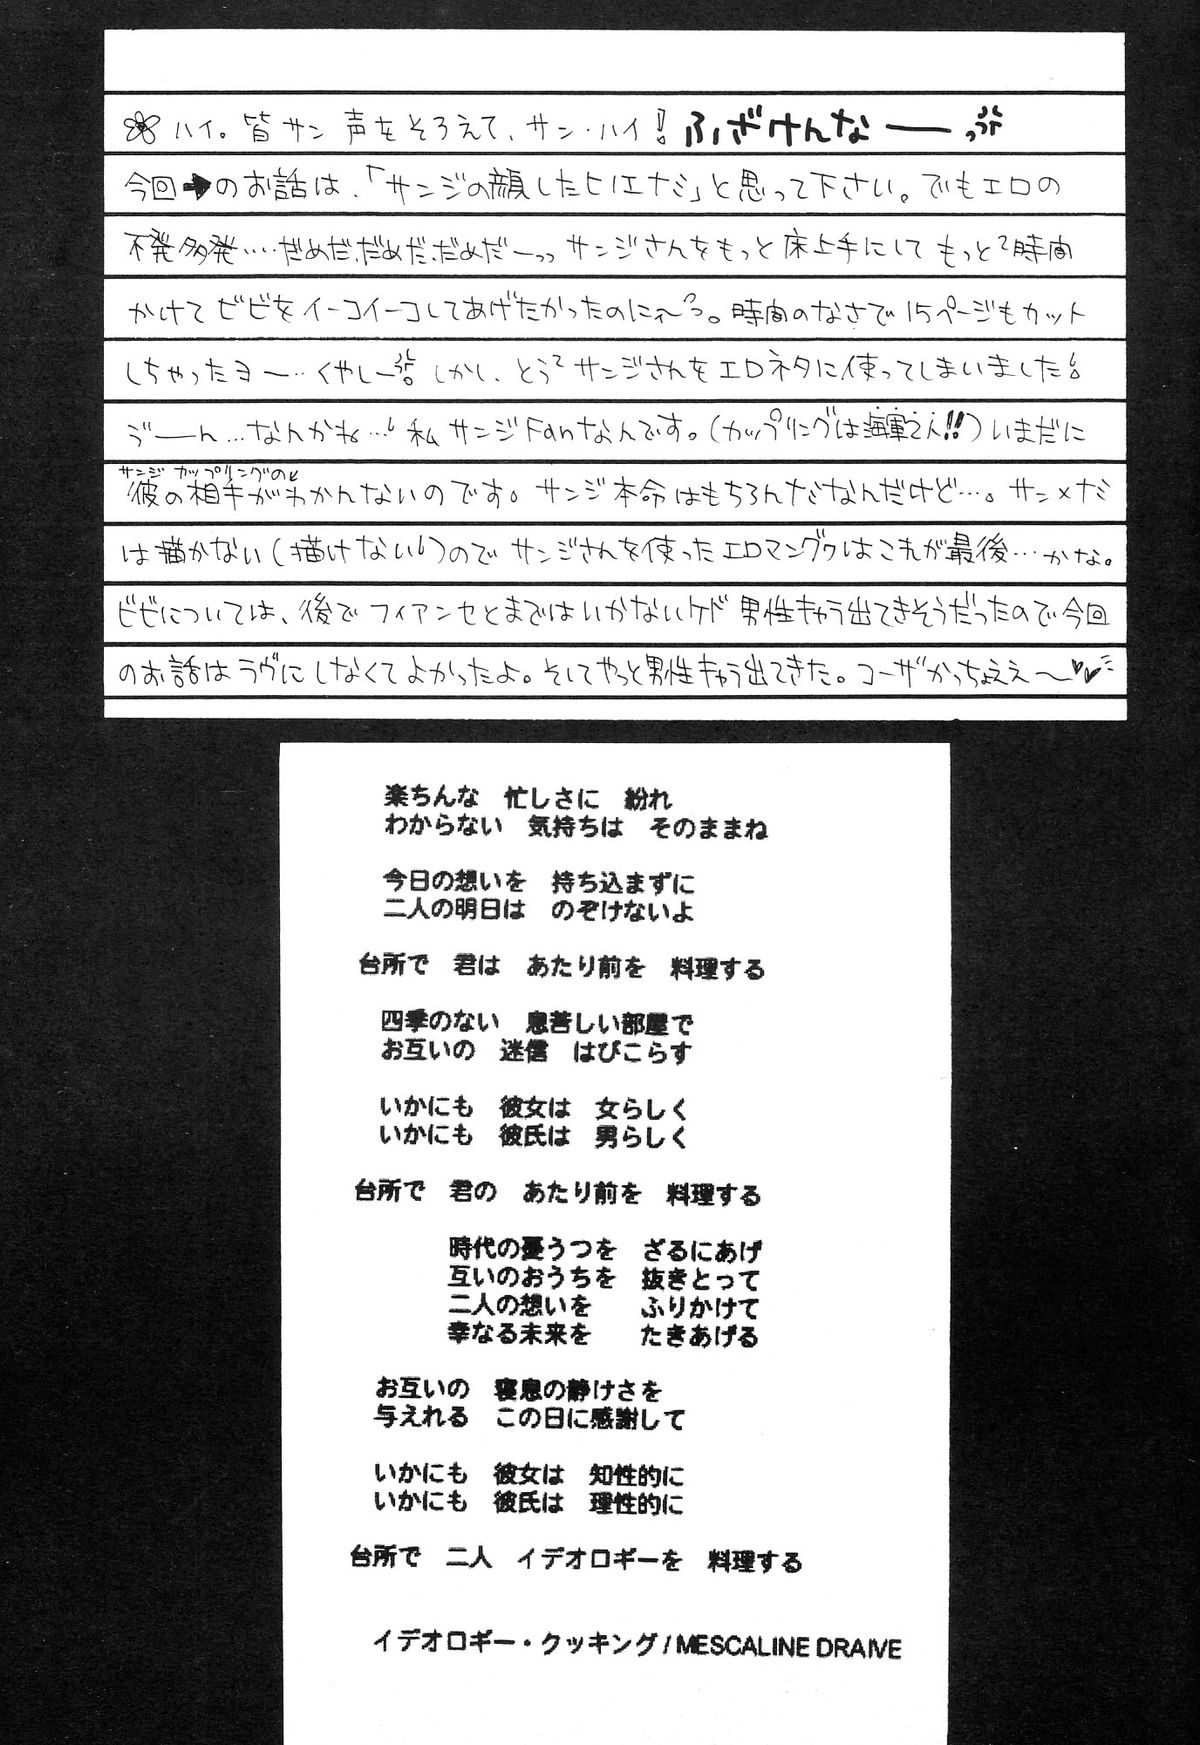 ハイ。皆サン 声をそろえて、サン・ハイ! ふざけんなーっ
今回➡のお話は、「サンジの顔したヒノエナミ」と思って下さい。でもエロの
不発多発‥‥だめだ、だめだ、だめだーっっ サンジさんをもっと床上手にして もっと2時間
かけてビビをイーコイーコしてあげたかったのにィ〜っ。時間のなさで15ページもカット
しちゃったヨー…くやしー しかし、とう2サンジさんをエロネタに使ってしまいました!
ゔーーん…なんかね…! 私 サンジFanなんです。(カップリングは海軍さん!!)いまだに
サンジ カップリングの
彼の相手がわかんないのです。サンジ本命はもちろんナミなんだけど…。サン×ナミ
は描かない(描けない!)ので サンジさんを使ったエロマンガはこれが最後…かな。
ビビについては、後でフィアンセとまではいかないケド 男性キャラ出てきそうだったので今回
のお話はラヴにしなくてよかったよ。そしてやっと男性キャラ出てきた。コーザかっちょええ〜♥♥
楽ちんな 忙しさに 紛れ
わからない 気持ちは そのままね
今日の想いを 持ち込まずに
二人の明日は のぞけないよ
台所で 君は あたり前を 料理する
四季のない 息苦しい部屋で
お互いの 迷信 はびこらす
いかにも 彼女は 女らしく
いかにも 彼氏は 男らしく
台所で 君の あたり前を 料理する
時代の憂うつを ざるにあげ
互いのおうちを 抜きとって
二人の想いを ふりかけて
幸なる未来を たきあげる
お互いの 寝息の静けさを
与えれる この日に感謝して
いかにも 彼女は 知性的に
いかにも 彼氏は 理性的に
台所で 二人 イデオロギーを 料理する
イデオロギー・クッキング/MESCALINE DRAIVE